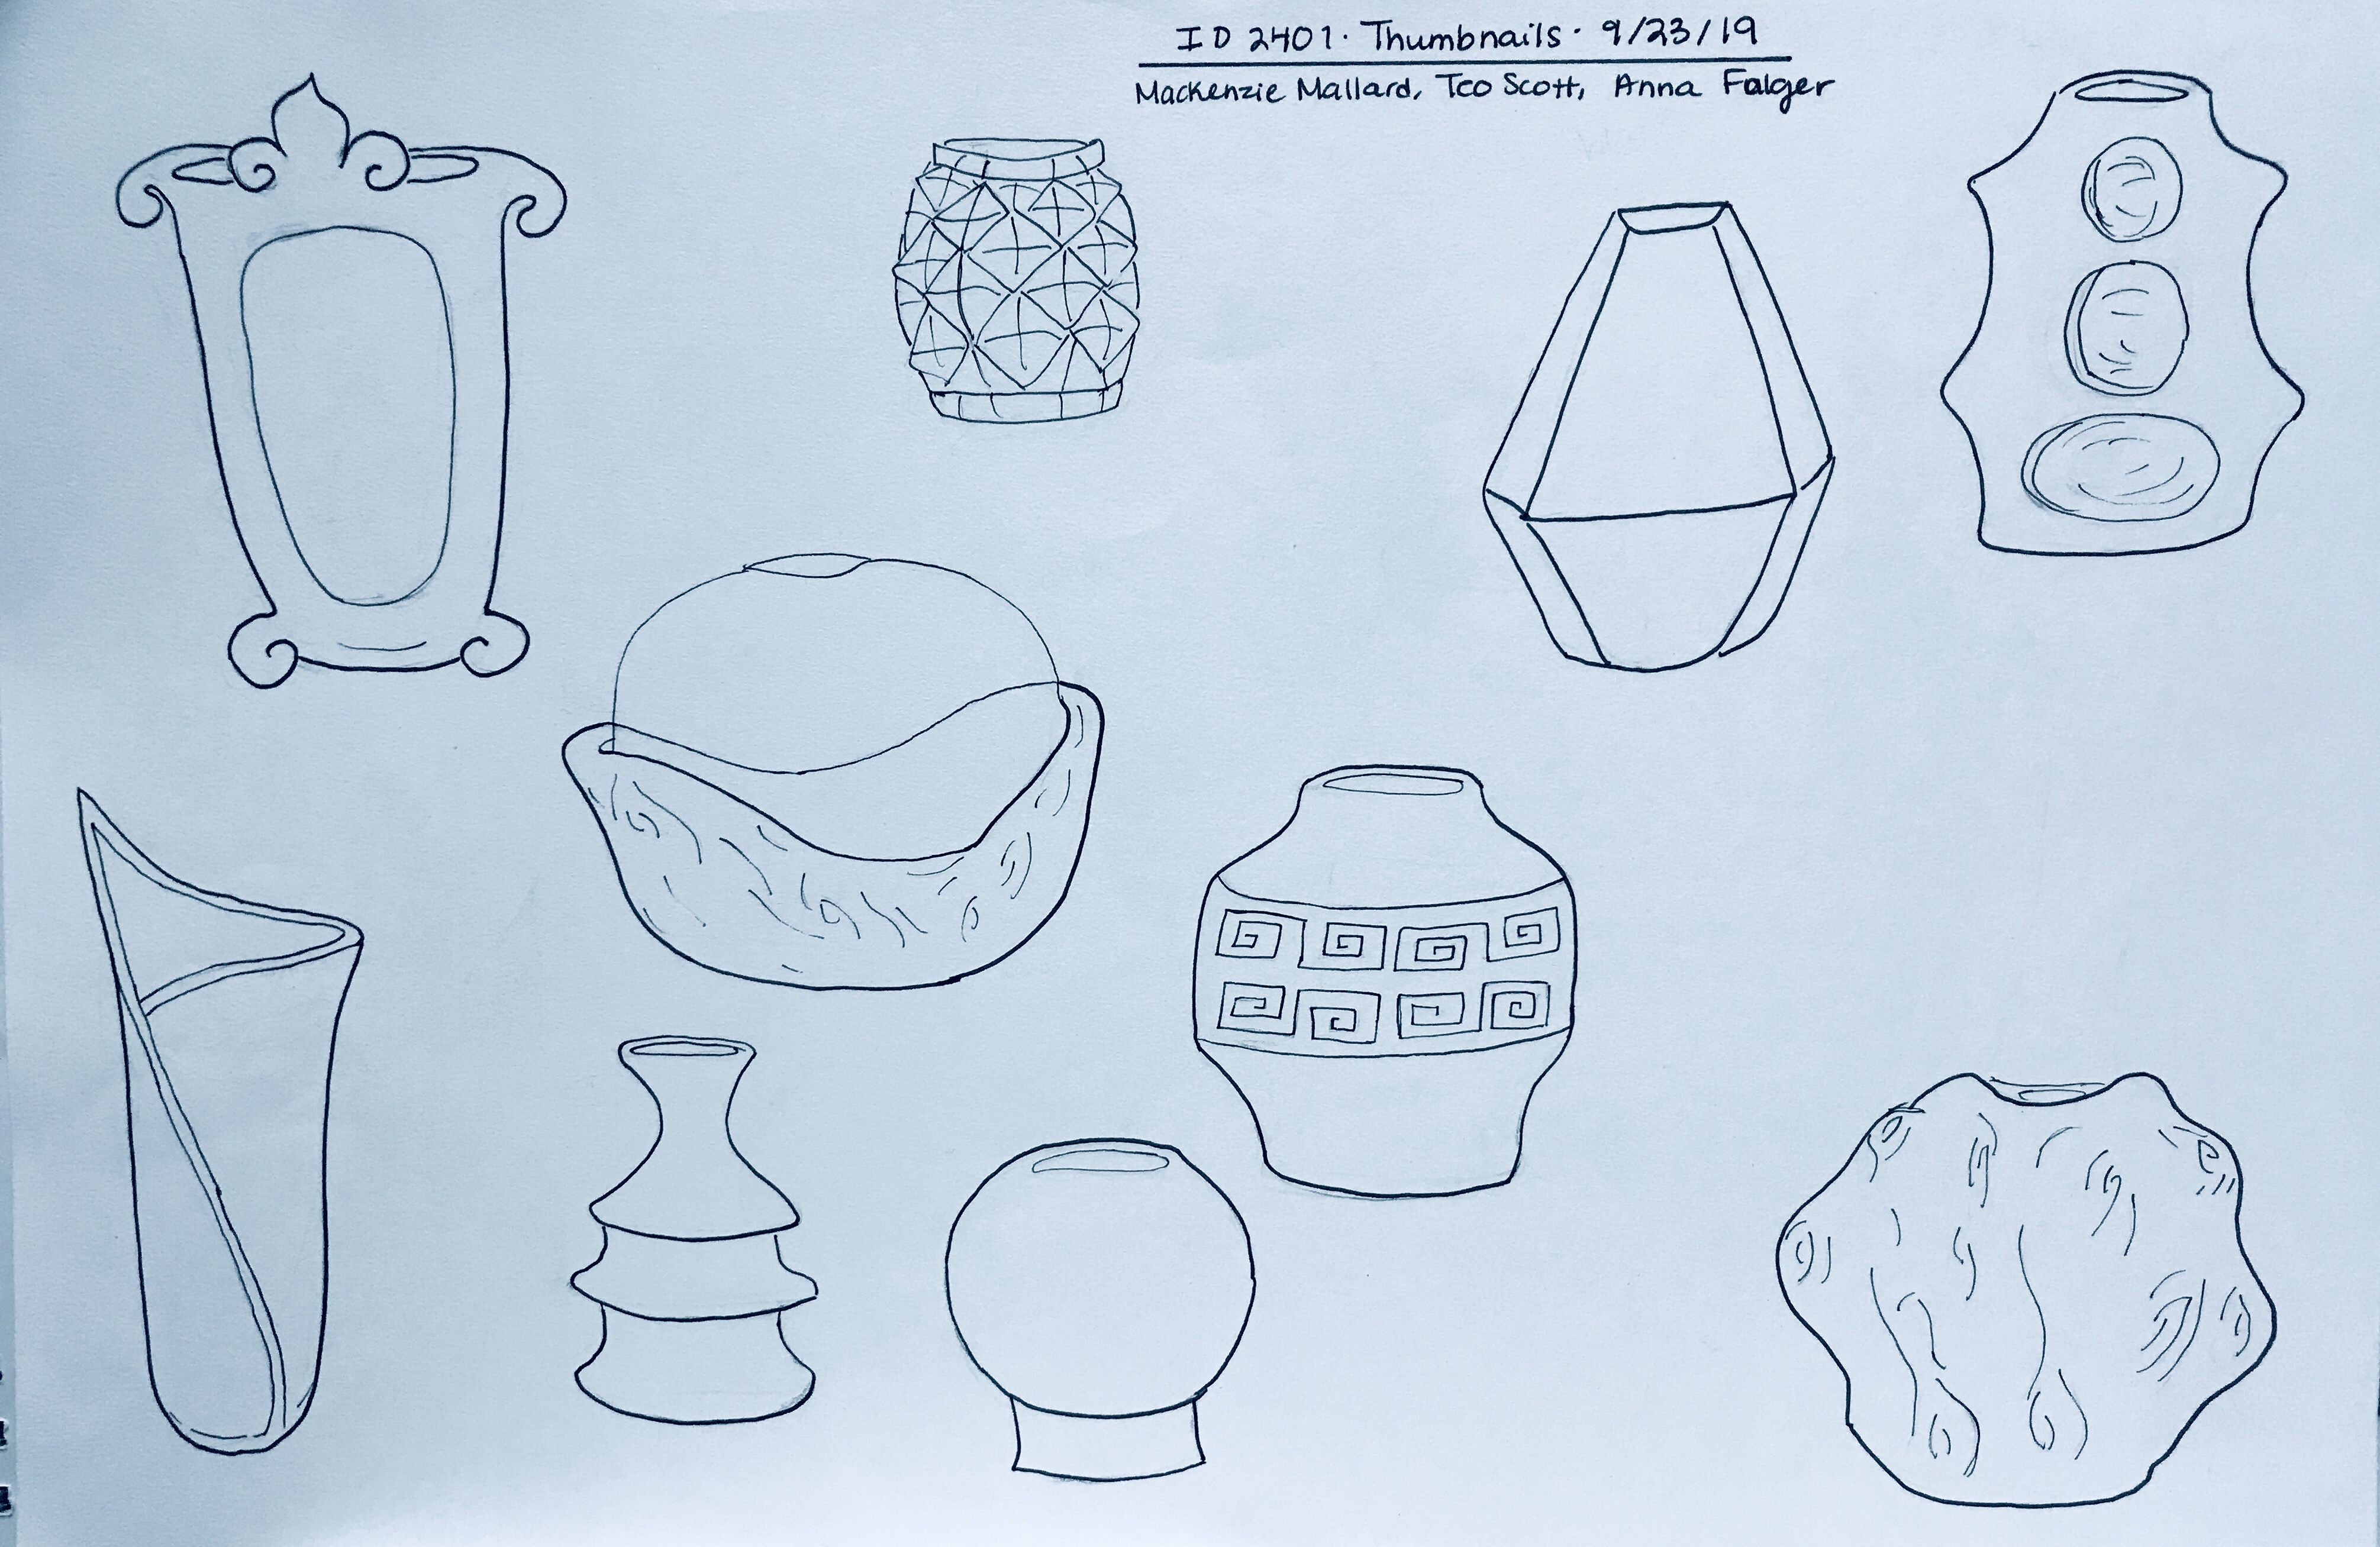 ID 2401 · Thumbnails · 9/23/19
Mackenzie Mallard, Teo Scott, Anna Falger